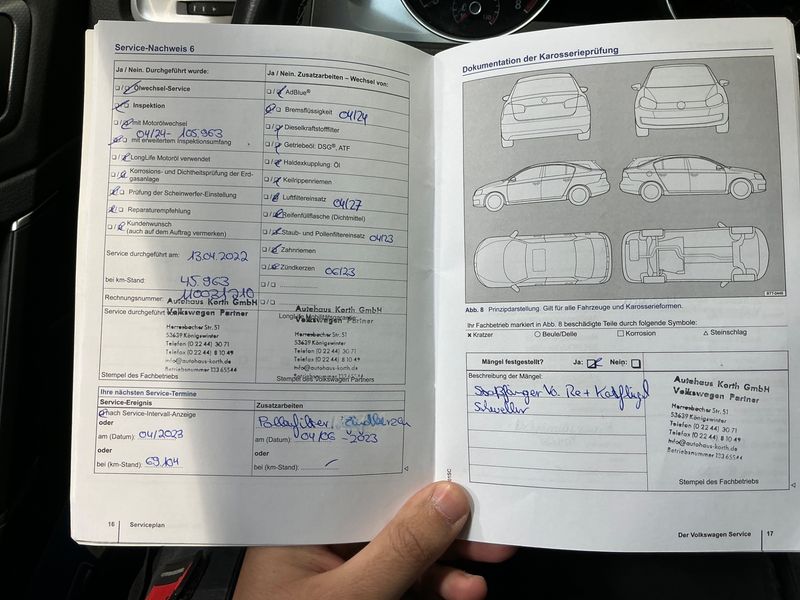 Service-Nachweis 6
Ja / Nein. Durchgeführt wurde:
Ölwechsel-Service
Inspektion
mit Motorölwechsel
04/24- 105.963
mit erweitertem Inspektionsumfang
LongLife Motoröl verwendet
Korrosions- und Dichtheitsprüfung der Erd-
gasanlage
Prüfung der Scheinwerfer-Einstellung
Reparaturempfehlung
Kundenwunsch
(auch auf dem Auftrag vermerken)
Service durchgeführt am: 13.04.2022
bei km-Stand: 45.963
Rechnungsnummer: 11003
Service durchgeführt
Autohaus Korth GmbH
Volkswagen Partner
Herresbacher Str. 51
53639 Königswinter
Telefon (0 22 44) 30 71
Telefax (0 22 44) 8 10 49
info@autohaus-korth.de
Betriebsnummer 133 65544
Stempel des Fachbetriebs
Ja / Nein. Zusatzarbeiten – Wechsel von:
AdBlue®
Bremsflüssigkeit 04/24
Dieselkraftstofffilter
Getriebeöl: DSG®, ATF
Haldexkupplung: Öl
Keilrippenriemen
Luftfiltereinsatz 04/27
Reifenfüllflasche (Dichtmittel)
Staub- und Pollenfiltereinsatz 04/23
Zahnriemen
Zündkerzen 06/23
Autohaus Korth GmbH
Volkswagen Partner
Herresbacher Str. 51
53639 Königswinter
Telefon (0 22 44) 30 71
Telefax (0 22 44) 8 10 49
info@autohaus-korth.de
Betriebsnummer 133 65544
Stempel des Volkswagen Partners
Ihre nächsten Service-Termine
Service-Ereignis
nach Service-Intervall-Anzeige
oder
am (Datum): 04/2023
oder
bei (km-Stand): 69.104
Zusatzarbeiten
Pollenfilter, Zündkerzen
am (Datum): 04/06 - 2023
oder
bei (km-Stand):
16
Serviceplan
Dokumentation der Karosserieprüfung
Abb. 8 Prinzipdarstellung: Gilt für alle Fahrzeuge und Karosserieformen.
Ihr Fachbetrieb markiert in Abb. 8 beschädigte Teile durch folgende Symbole:
× Kratzer
○ Beule/Delle
□ Korrosion
△ Steinschlag
Mängel festgestellt? Ja: Nein:
Beschreibung der Mängel:
Stoßfänger Vo. Re + Kotflügel
Schweller
Autohaus Korth GmbH
Volkswagen Partner
Herresbacher Str. 51
53639 Königswinter
Telefon (0 22 44) 30 71
Telefax (0 22 44) 8 10 49
info@autohaus-korth.de
Betriebsnummer 133 65544
Stempel des Fachbetriebs
Der Volkswagen Service
17